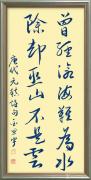 曾經滄海難為水
除却巫山不是雲
唐代元稹詩句